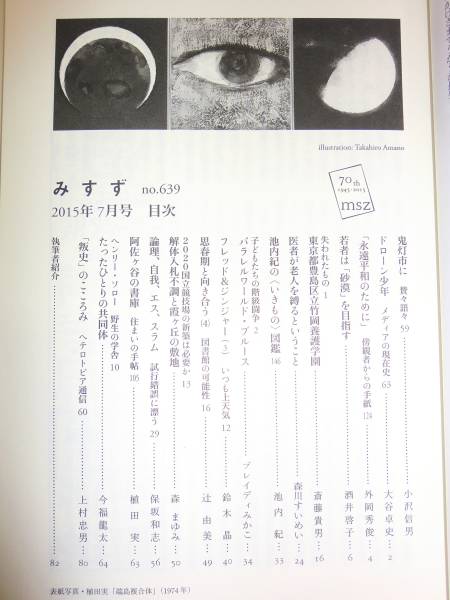 illustration: Takahiro Amano
70th
1945-2015
msz
みすず no.639
2015年7月号 目次
鬼灯市に 賛々語々 59 小沢信男 2
ドローン少年 メディアの現在史 63 大谷卓史 2
「永遠平和のために」 傍観者からの手紙 124 外岡秀俊 4
若者は「砂漠」を目指す 酒井啓子 6
失われたもの 1
東京都豊島区立竹岡養護学園 斎藤貴男 16
医者が老人を縛るということ 森川すいめい 24
池内紀の〈いきもの〉図鑑 146 池内紀 33
子どもたちの階級闘争 2
パラレルワールド・ブルース ブレイディみかこ 34
フレッド&ジンジャー(3) いつも上天気 12 鈴木晶 40
思春期と向き合う(4) 図書館の可能性 16 辻由美 49
2020国立競技場の新築は必要か 13
解体入札不調と霞ヶ丘の敷地 森まゆみ 50
論理、自我、エス、スラム 試行錯誤に漂う 29 保坂和志 56
阿佐ヶ谷の書庫 住まいの手帖 105 植田実 63
ヘンリー・ソロー 野生の学舎 10
たったひとりの共同体 今福龍太 64
「叛史」のこころみ ヘテロトピア通信 60 上村忠男 80
執筆者紹介 82
表紙写真・植田実「端島複合体」(1974年)